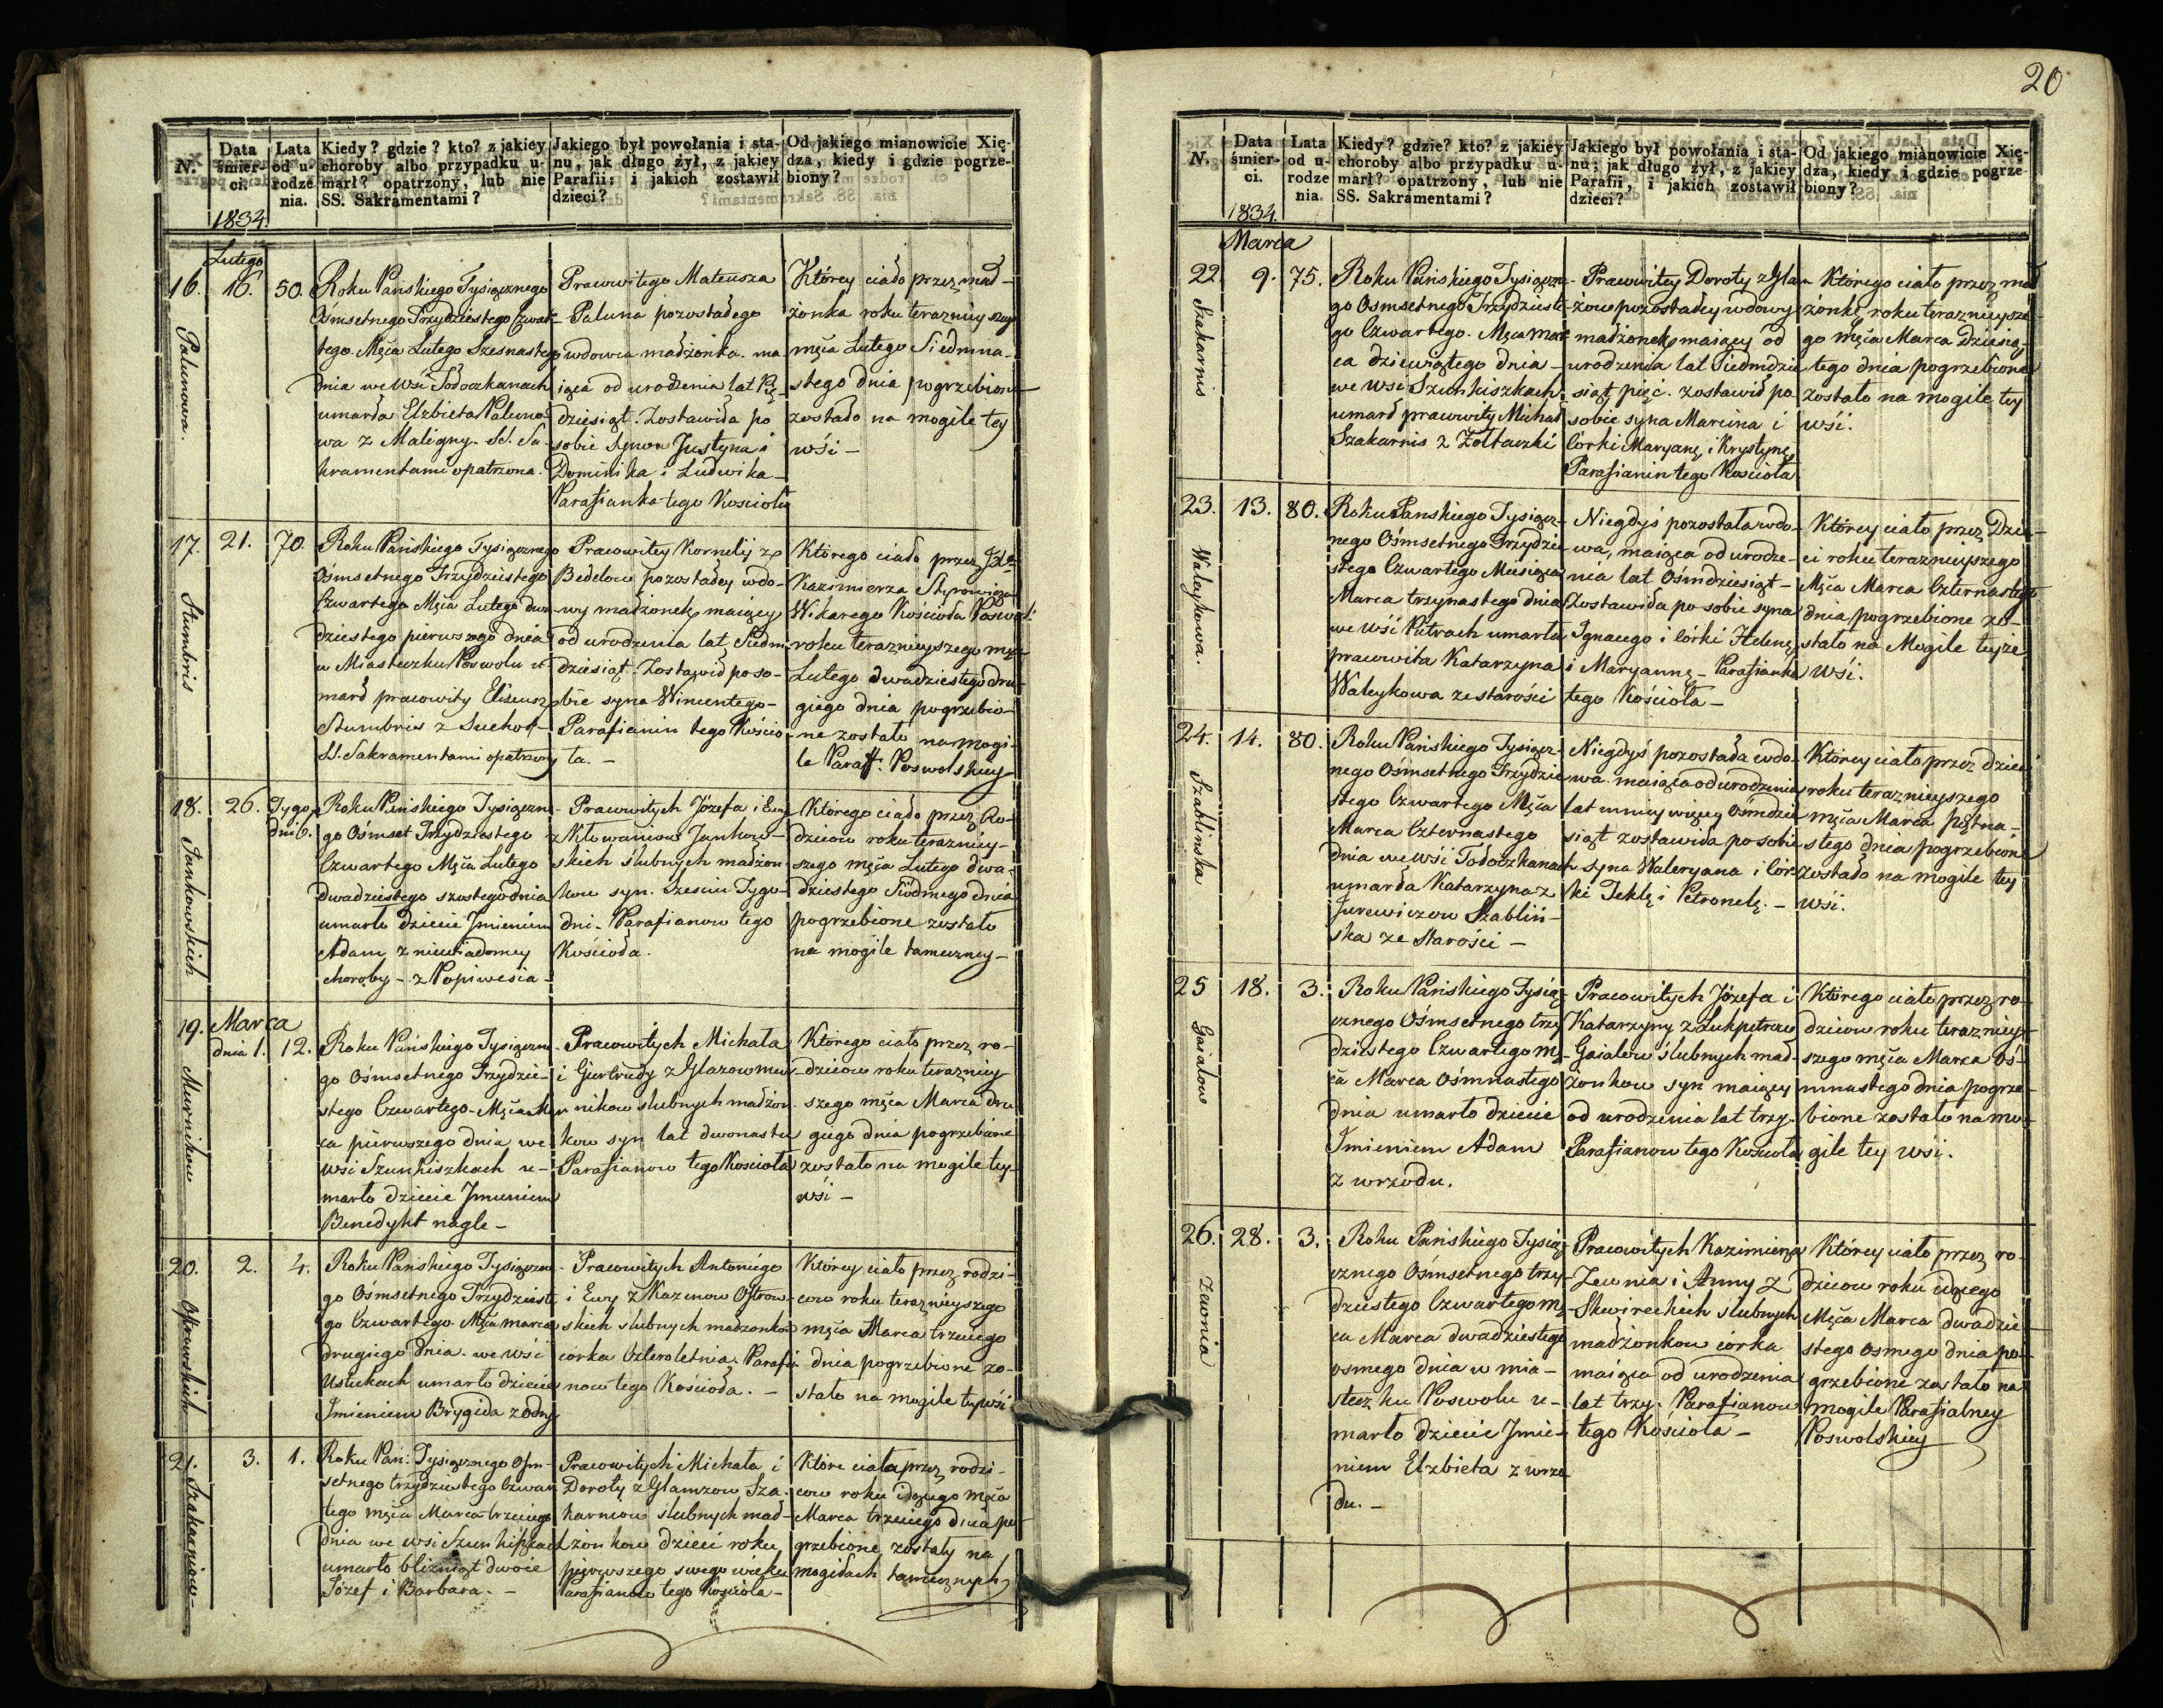 N.
Data śmier-ci.
1834.
Lata od u-rodze nia.
Kiedy? gdzie? kto? z jakiey
choroby albo przypadku u-
marł? opatrzony, lub nie
SS. Sakramentami?
Jakiego był powołania i sta-
nu, jak długo żył, z jakiey
Parafii; i jakich zostawił
dzieci?
Od jakiego mianowicie Xię-
dza, kiedy i gdzie pogrze-
biony?
Lutego
16. 16. 50.
Palunowa.
Roku Pańskiego Tysiącznego
Ośmsetnego Trzydziestego Czwar-
tego Męca Lutego Szesnastego
dnia we Wsi Todoczkanach
umarła Elżbieta Paluno-
wa z Maligny. SS. Sa-
kramentami opatrzona.
Pracowitego Mateusza
Paluna pozostałego
wdowca małżonka. ma-
iąca od urodzenia lat Pię-
dziesiąt. Zostawiła po
sobie Synow Justyna i
Dominika i Ludwika
Parafianka tego Kościoła
Którey ciało przez mał-
żonka roku teraznieyszego
męca Lutego Siedmna-
stego dnia pogrzebione
zostało na mogile tey
wśi -
17. 21. 70.
Stumbris
Roku Pańskiego Tysiącznego
Ośmsetnego Trzydziestego
Czwartego Męca Lutego dwu-
dziestego pierwszego dnia
w Miasteczku Poswolu u-
marł pracowity Elizeusz
Stumbris z Suchot
SS. Sakramentami opatrzony
Pracowitey Kornelij z
Bedelow pozostałey wdo-
wy małżonek maiący
od urodzenia lat Siedm-
dziesiąt. Zostawił po so-
bie syna Wincentego-
Parafianin tego Kościo-
ła. -
Którego ciało przez JX
Kazimierza
Wikarego Kościoła Poswol:
roku teraznieyszego męca
Lutego dwadziestego dru-
giego dnia pogrzebio-
ne zostało na mogi-
le Paraff: Poswolskiey
18. 26. Tygo: dni 6.
Jankowskich
Roku Pańskiego Tysiączne-
go Ośmset Trzydziestego
Czwartego Męca Lutego
dwadziestego szostego dnia
umarło dziecie Jmieniem
Adam z niewiadomey
choroby - z Popiwesia -
Pracowitych Józefa i Ewy
z Klowaniow Jankow-
skich ślubnych małżon-
kow syn. Sześciu Tygo-
dni. Parafianow tego
Kościoła.
Którego ciało przez Ro-
dzicow roku terazniey-
szego męca Lutego dwa-
dziestego Siódmego dnia
pogrzebione zostało
na mogile tameczney -
Marca
19. dnia 1. 12.
Murnikow
Roku Pańskiego Tysiączne-
go Ośmsetnego Trzydzie-
stego Czwartego - Męca Mar-
ca pierwszego dnia we
wsi Szunkiszkach u-
marło dziecie Jmieniem
Benedykt nagle -
Pracowitych Michała
i Giertrudy z Glazow Mur-
nikow slubnych małżon-
kow syn lat dwonastu
Parafianow tego Kościoła
Którego ciało przez ro-
dzicow roku terazniey
szego męca Marca dru
giego dnia pogrzebione
zostało na mogile tey
wśi -
20. 2. 4.
Ostrowskich
Roku Pańskiego Tysiączne-
go Ośmsetnego Trzydzieste
go Czwartego Męca marca
drugiego dnia. we Wsi
Ustukach umarło dziecie
Jmieniem Brygida z odry
Pracowitych Antoniego
i Ewy z Kazinow Ostrow-
skich slubnych małżonkow
corka Czteroletnia. Parafia-
now tego Kościoła. -
Którey ciało przez rodzi-
cow roku teraznieyszego
męca Marca trzeciego
dnia pogrzebione zo-
stało na mogile tey wśi
21. 3. 1.
Szakarniow -
Roku Pań: Tysiącznego Ośm-
setnego trzydziestego Czwar
tego męca Marca trzeciego
dnia we wsi Szunkiszkach
umarło bliźniąt dwoie
Józef i Barbara. -
Pracowitych Michała i
Doroty z Glamzow Sza-
karniow slubnych mał-
żonkow dzieci roku
pierwszego swego wieku
Parafianow tego Kościoła -
Które ciała przez rodzi-
cow roku idącego męca
Marca trzeciego dnia po-
grzebione zostały na
mogiłach tamecznych
20
N.
Data śmier-ci.
1834.
Lata od u-rodze nia.
Kiedy? gdzie? kto? z jakiey
choroby albo przypadku u-
marł? opatrzony, lub nie
SS. Sakramentami?
Jakiego był powołania i sta-
nu; jak długo żył, z jakiey
Parafii, i jakich zostawił
dzieci?
Od jakiego mianowicie Xię-
dza, kiedy i gdzie pogrze-
biony?
Marca
22. 9. 75.
Szakarnis
Roku Pańskiego Tysiączne-
go Ośmsetnego Trzydzieste-
go Czwartego. Męca Mar-
ca dziewiątego dnia -
we wsi Szunkiszkach
umarł pracowity Michał
Szakarnis z Żołtaczki
Pracowitey Doroty z Gla-
żow pozostałey wdowy
małżonek, maiący od
urodzenia lat Siedmdzie
siąt pięć. zostawił po
sobie syna Marcina i
Córki Maryanę i Krystynę
Parafianin tego Kościoła
Którego ciało przez mał
żonkę roku teraznieysze-
go Męca Marca Dziesią-
tego dnia pogrzebione
zostało na mogile tey
wśi.
23. 13. 80.
Waleykowa.
Roku Pańskiego Tysiącz-
nego Ośmsetnego Trzydzie-
stego Czwartego Miesiąca
Marca trzynastego dnia
we wśi Putrach umarła
pracowita Katarzyna
Waleykowa ze starości
Niegdyś pozostała wdo-
wa, maiąca od urodze-
nia lat Ośmdziesiąt -
Zostawiła po sobie syna
Ignacego i Córki Helenę
i Maryannę - Parafianka
tego Kościoła -
Którey ciało przez Dzie-
ci roku teraznieyszego
Męca Marca Czternastego
dnia pogrzebione zo-
stało na Mogile teyże
wśi.
24. 14. 80.
Szablinska
Roku Pańskiego Tysiącz-
nego Ośmsetnego Trzydzie
stego Czwartego Męca
Marca Czternastego
dnia we wśi Todoczkanach
umarła Katarzyna z
Jurewiczow Szabliń-
ska ze Starości -
Niegdyś pozostała wdo-
wa. maiąca od urodzenia
lat mniey więcey Ośmdzie
siąt zostawiła po sobie
syna Waleryana i Cór
ki Teklę i Petronelę. -
Którey ciało przez dzieci
roku teraznieyszego
męca Marca piętna-
stego dnia pogrzebione
zostało na mogile tey
wśi.
25 18. 3.
Gaialow
Roku Pańskiego Tysią-
cznego Ośmsetnego trzy
dziestego Czwartego Mę-
ca Marca Ośmnastego
dnia umarło dziecie
Jmieniem Adam
z wrzodu.
Pracowitych Józefa i
Katarzyny z
Gaialow ślubnych mał-
żonkow syn maiący
od urodzenia lat trzy.
Parafianow tego Kościoła
Którego ciało przez ro-
dzicow roku terazniey-
szego męca Marca Oś-
mnastego dnia pogrze-
bione zostało na mo-
gile tey wśi.
26. 28. 3.
Zwonia
Roku Pańskiego Tysią-
cznego Ośmsetnego trzy-
dziestego Czwartego Mę-
ca Marca dwadziestego
osmego dnia w mia-
steczku Poswolu u-
marło dziecie Jmie-
niem Elzbieta z wrzo
du. -
Pracowitych Kazimierza
i Anny z
Skwireckich slubnych
małżonkow córka
maiąca od urodzenia
lat trzy. Parafianow
tego Kościoła -
Którey ciało przez ro-
dzicow roku idącego
Męca Marca dwadzie
stego osmego dnia po-
grzebione zostało na
mogile Parafialney
Poswolskiey